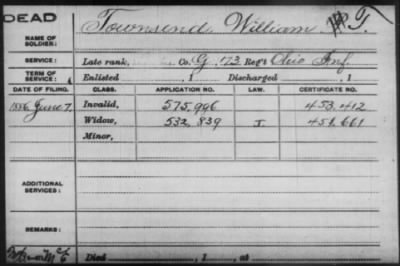 DEAD
NAME OF SOLDIER: Townsend, William T.
SERVICE: Late rank, Co. G, 173 Reg't Ohio Inf.
TERM OF SERVICE: Enlisted , 1 Discharged , 1
DATE OF FILING. CLASS. APPLICATION NO. LAW. CERTIFICATE NO.
1886, June 7, Invalid, 575,996 453,412
Widow, 532,839 J. 451,661
Minor,
ADDITIONAL SERVICES:
REMARKS:
Died , 1 , at